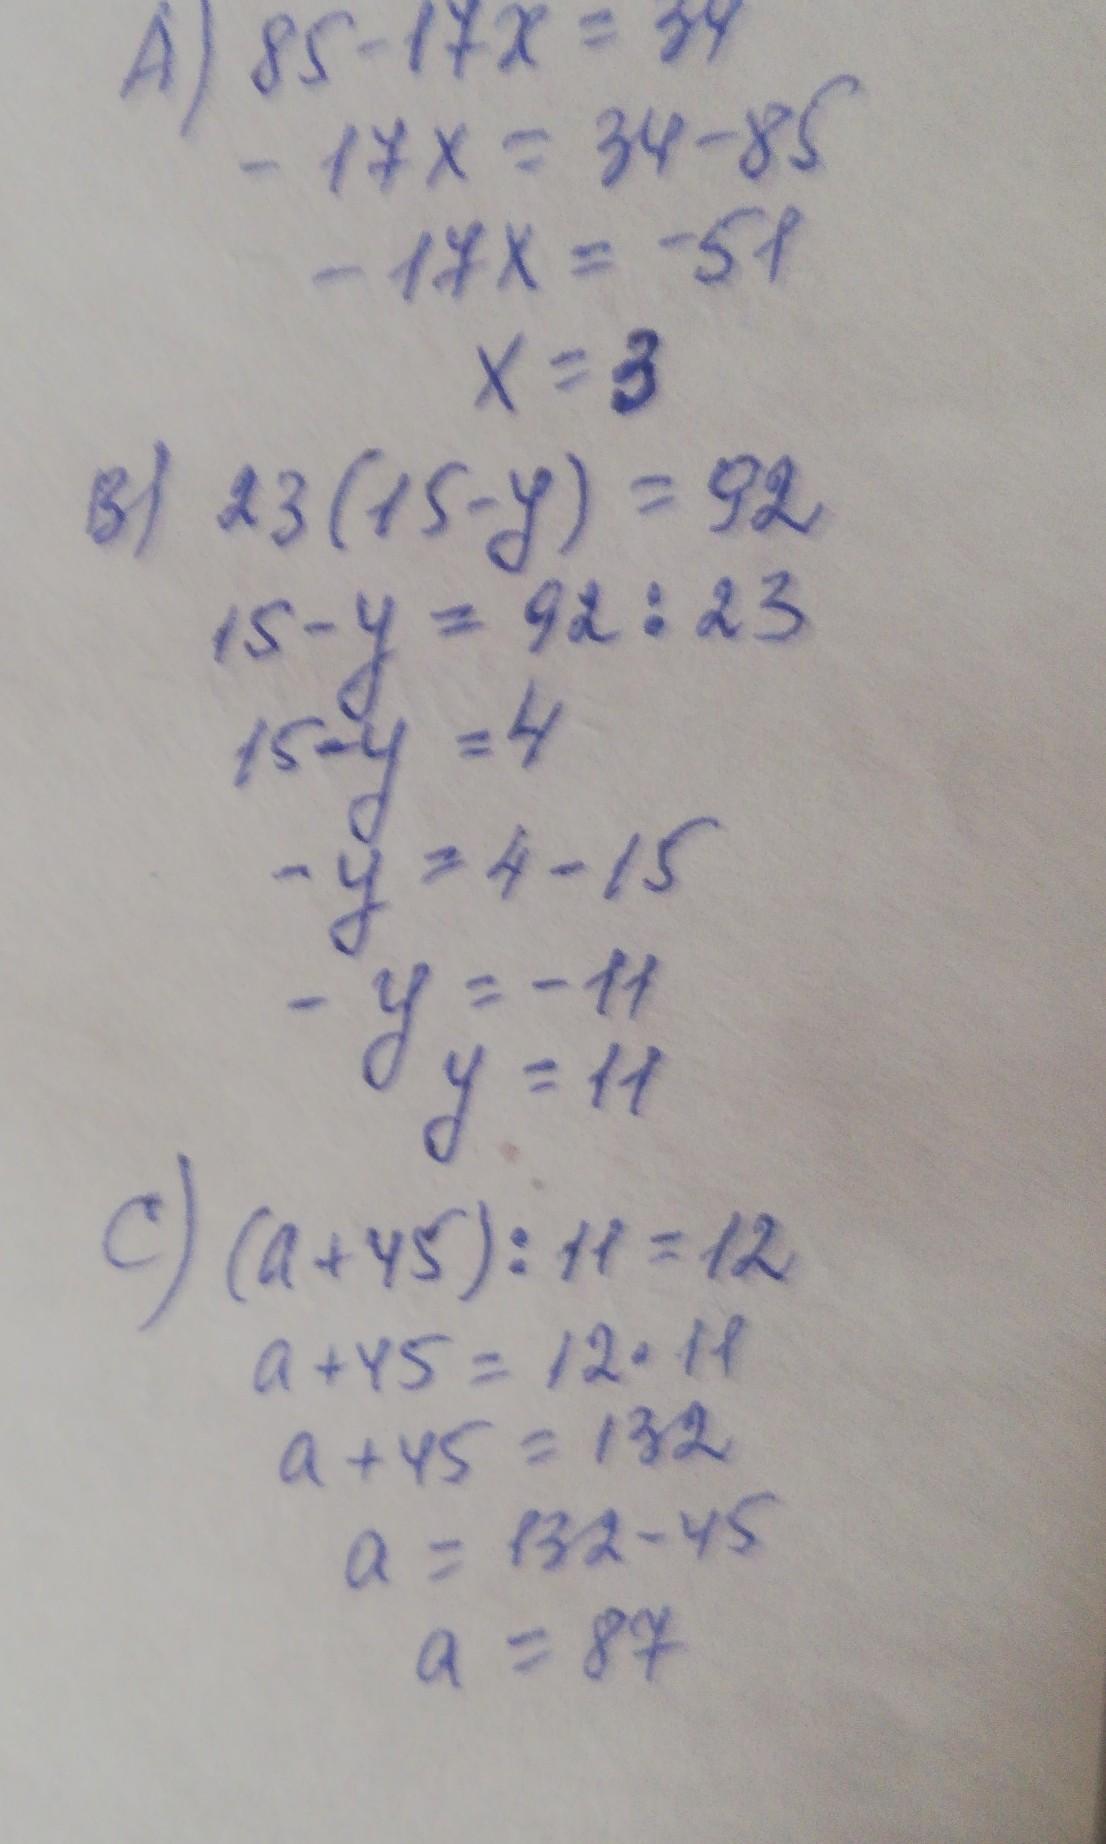 A) 85-17x = 34
- 17x = 34-85
- 17x = -51
x = 3
B) 23(15-y) = 92
15-y = 92:23
15-y = 4
-y = 4-15
- y = -11
y = 11
C) (a+45):11=12
a+45 = 12·11
a+45 = 132
a = 132-45
a = 87